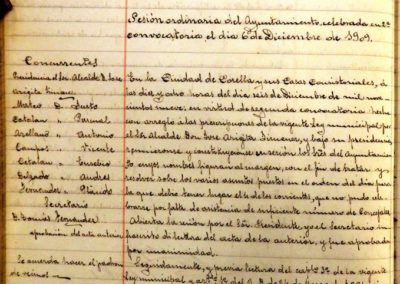 Sesión ordinaria del Ayuntamiento, celebrada en 2ª
convocatoria el día 6 de Diciembre de 1909.
Concurrentes
Presidencia el Sr. Alcalde D. José
Arigita Limara
Mateo D. Justo
Catalan " Pascual
Arellano " Antonio
Campos " Vicente
Catalan " Eusebio
Delgado " Andrés
Fernandez " Plácido
Secretario
D. Tomás Fernandez
aprobación del acta anterior
Se acuerda hacer el padron
de vecinos
En la Ciudad de Corella y sus Casas Consistoriales, á
las diez y ocho horas del día seis de Diciembre de mil nove-
cientos nueve; en virtud de segunda convocatoria hecha
con arreglo á las prescripciones de la vigente ley municipal por
el Sr. Alcalde Don José Arigita Limara, y bajo su presidencia
reunieronse y constituyeronse en sesión los Sres. del Ayuntamien-
to cuyos nombres figuran al margen, con el fin de tratar y
resolver sobre los varios asuntos puestos en el orden del día para
la que debió tener lugar el 4 de los corrientes, que no pudo cele-
brarse por falta de asistencia de suficiente número de Concejales
Abierta la sesión por el Sr. Presidente, yo el Secretario in-
frascrito dí lectura del acta de la anterior, y fué aprobada
por unanimidad.
Seguidamente, y previa lectura del artº de la vigente
ley municipal y